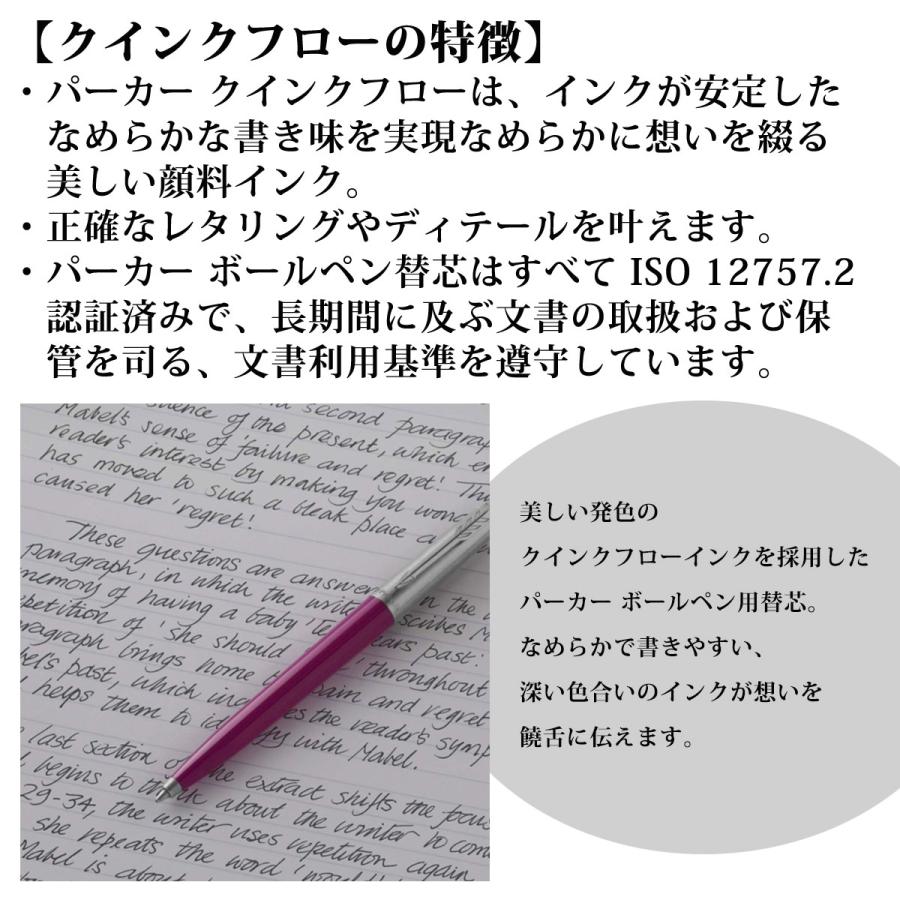 【クインクフローの特徴】
・パーカー クインクフローは、インクが安定した
なめらかな書き味を実現なめらかに想いを綴る
美しい顔料インク。
・正確なレタリングやディテールを叶えます。
・パーカー ボールペン替芯はすべて ISO 12757.2
認証済みで、長期間に及ぶ文書の取扱および保
管を司る、文書利用基準を遵守しています。
second paragraph
of the present, which
Mabel's sense of 'failure and regret! 
reader's interest by making you
has moved to such a bleak place
caused her 'regret!
These questions are in the
paragraph, in which the
memory of having a baby
of 'she should past.
paragraph brings home throughout
past, which the reader's
helps them to with Mabel.
last section of the extract shifts the
begins to think about the writer
29-34, the writer uses repetition again
she repeats the word
Mabel is
美しい発色の
クインクフローインクを採用した
パーカー ボールペン用替芯。
なめらかで書きやすい、
深い色合いのインクが想いを
饒舌に伝えます。